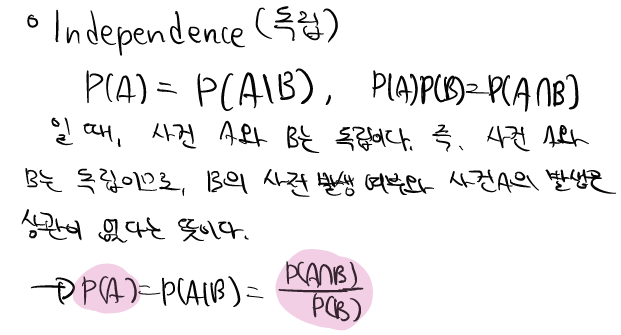 ◦ Independence (독립)
P(A) = P(A|B), P(A)P(B)=P(A∩B)
일 때, 사건 A와 B는 독립이다. 즉, 사건 A와
B는 독립이므로, B의 사건 발생 여부와 사건A의 발생은
상관이 없다는 뜻이다.
→ P(A)=P(A|B)= P(A∩B)/P(B)